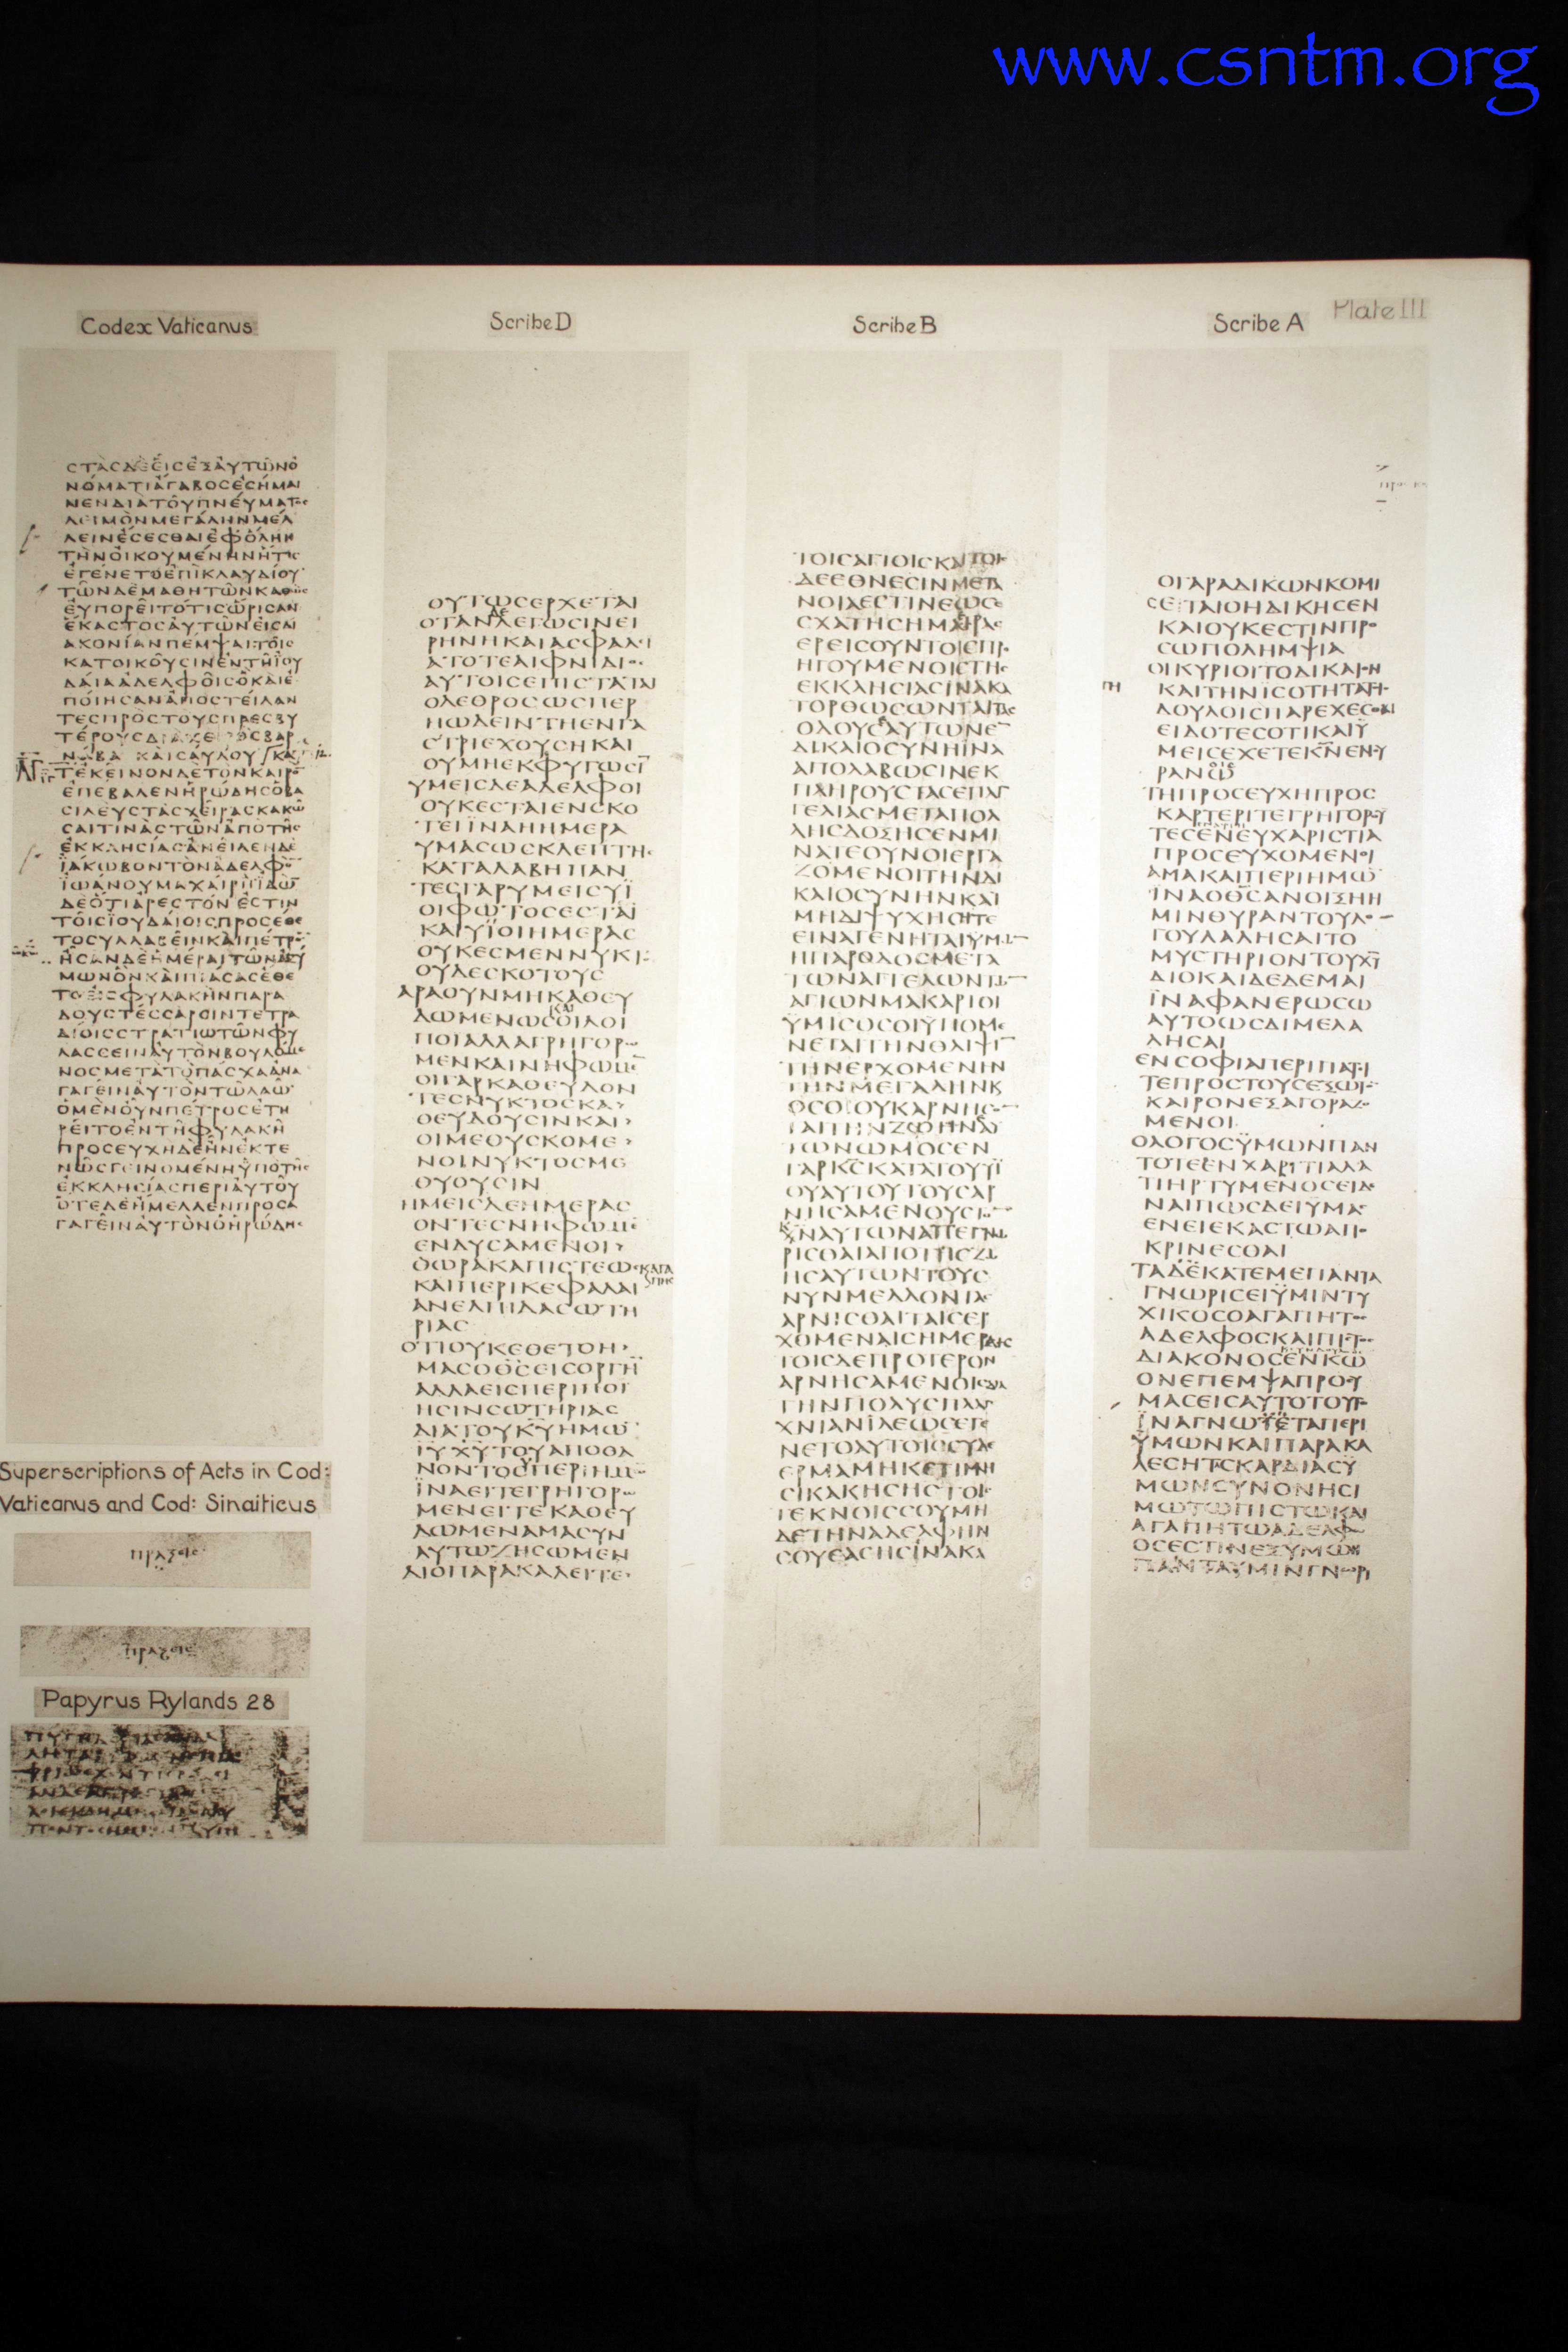 www.csntm.org
Plate III
Codex Vaticanus
ϹΤΑϹΔΕΕΙϹΕΞΑΥΤΩΝΟ
ΝΟΜΑΤΙΑΓΑΒΟϹΕϹΗΜΑΙ
ΝΕΝΔΙΑΤΟΥΠΝΕΥΜΑΤΟϹ
ΛΕΙΜΟΝΜΕΓΑΛΗΝΜΕΛ
ΛΕΙΝΕϹΕϹΘΑΙΕΦΟΛΗΝ
ΤΗΝΟΙΚΟΥΜΕΝΗΝΗΤΙϹ
ΕΓΕΝΕΤΟΕΠΙΚΛΑΥΔΙΟΥ
ΤΩΝΔΕΜΑΘΗΤΩΝΚΑΘΩϹ
ΕΥΠΟΡΕΙΤΟΤΙϹΩΡΙϹΑΝ
ΕΚΑϹΤΟϹΑΥΤΩΝΕΙϹΔΙ
ΑΚΟΝΙΑΝΠΕΜΨΑΙΤΟΙϹ
ΚΑΤΟΙΚΟΥϹΙΝΕΝΤΗΙΟΥ
ΔΑΙΑΑΔΕΛΦΟΙϹΟΚΑΙΕ
ΠΟΙΗϹΑΝΑΠΟϹΤΕΙΛΑΝ
ΤΕϹΠΡΟϹΤΟΥϹΠΡΕϹΒΥ
ΤΕΚΕΙΝΟΝΔΕΤΟΝΚΑΙΡΟ
ΕΠΕΒΑΛΕΝΗΡΩΔΗϹΟΒΑ
ϹΙΛΕΥϹΤΑϹΧΕΙΡΑϹΚΑΚΩ
ϹΑΙΤΙΝΑϹΤΩΝΑΠΟΤΗϹ
ΕΚΚΛΗϹΙΑϹΑΝΕΙΛΕΝΔΕ
ΪΑΚΩΒΟΝΤΟΝΑΔΕΛΦΟ
ΪΩΑΝΟΥΜΑΧΑΙΡΗΪΔΩ
ΔΕΟΤΙΑΡΕϹΤΟΝΕϹΤΙΝ
ΤΟΙϹΪΟΥΔΑΙΟΙϹΠΡΟϹΕΘΕ
ΤΟϹΥΛΛΑΒΕΙΝΚΑΙΠΕΤΡΟ
ΗϹΑΝΔΕΗΜΕΡΑΙΤΩΝΑΖΥ
ΜΩΝΟΝΚΑΙΠΙΑϹΑϹΕΘΕ
ΤΟΕΙϹΦΥΛΑΚΗΝΠΑΡΑ
ΔΟΥϹΤΕϹϹΑΡϹΙΝΤΕΤΡΑ
ΔΙΟΙϹϹΤΡΑΤΙΩΤΩΝΦΥ
ΛΑϹϹΕΙΝΑΥΤΟΝΒΟΥΛΟΜΕ
ΝΟϹΜΕΤΑΤΟΠΑϹΧΑΑΝΑ
ΓΑΓΕΙΝΑΥΤΟΝΤΩΛΑΩ
ΟΜΕΝΟΥΝΠΕΤΡΟϹΕΤΗ
ΡΕΙΤΟΕΝΤΗΦΥΛΑΚΗ
ΠΡΟϹΕΥΧΗΔΕΗΝΕΚΤΕ
ΝΩϹΓΕΙΝΟΜΕΝΗΥΠΟΤΗϹ
ΕΚΚΛΗϹΙΑϹΠΕΡΙΑΥΤΟΥ
ΟΤΕΔΕΗΜΕΛΛΕΝΠΡΟϹΑ
ΓΑΓΕΙΝΑΥΤΟΝΟΗΡΩΔΗϹ
Superscriptions of Acts in Cod:
Vaticanus and Cod: Sinaiticus
πραξειϲ
πραξειϲ
Papyrus Rylands 28
Scribe D
ΟΥΤΩϹΕΡΧΕΤΑΙ
ΔΕ
ΟΤΑΝΛΕΓΩϹΙΝΕΙ
ΡΗΝΗΚΑΙΑϹΦΑΛΙ
ΑΥΤΟΙϹΕΠΙϹΤΑΤΑΙ
ΟΛΕΘΡΟϹΩϹΠΕΡ
ΗΩΔΕΙΝΤΗΕΝΓΑ
ϹΤΡΙΕΧΟΥϹΗΚΑΙ
ΟΥΜΗΕΚΦΥΓΩϹΙ
ΥΜΕΙϹΔΕΑΔΕΛΦΟΙ
ΟΥΚΕϹΤΑΙΕΝϹΚΟ
ΤΕΙΪΝΑΗΗΜΕΡΑ
ΥΜΑϹΩϹΚΛΕΠΤΗϹ
ΚΑΤΑΛΑΒΗΠΑΝ
ΤΕϹΓΑΡΥΜΕΙϹΥΪ
ΟΙΦΩΤΟϹΕϹΤΑΙ
ΚΑΙΥΪΟΙΗΜΕΡΑϹ
ΟΥΚΕϹΜΕΝΝΥΚΤΟϹ
ΟΥΔΕϹΚΟΤΟΥϹ
ΑΡΑΟΥΝΜΗΚΑΘΕΥ
ΚΑΙ
ΔΩΜΕΝΩϹΟΙΛΟΙ
ΠΟΙΑΛΛΑΓΡΗΓΟΡΩ
ΜΕΝΚΑΙΝΗΦΩΜΕ
ΟΙΓΑΡΚΑΘΕΥΔΟΝ
ΤΕϹΝΥΚΤΟϹΚΑ>
ΘΕΥΔΟΥϹΙΝΚΑΙ>
ΟΙΜΕΘΥϹΚΟΜΕ>
ΝΟΙΝΥΚΤΟϹΜΕ
ΘΥΟΥϹΙΝ
ΗΜΕΙϹΔΕΗΜΕΡΑϹ
ΟΝΤΕϹΝΗΦΩΜΕ
ΕΝΔΥϹΑΜΕΝΟΙ>
ΘΩΡΑΚΑΠΙϹΤΕΩϹΚΑΓΑ
ΠΗϹ
ΚΑΙΠΕΡΙΚΕΦΑΛΑΙ
ΑΝΕΛΠΙΔΑϹΩΤΗ
ΡΙΑϹ
ΟΤΙΟΥΚΕΘΕΤΟΗ>
ΜΑϹΟΘϹΕΙϹΟΡΓΗ
ΑΛΛΑΕΙϹΠΕΡΙΠΟΙ
ΗϹΙΝϹΩΤΗΡΙΑϹ
ΔΙΑΤΟΥΚΥΗΜΩ
ΙΥΧΥΤΟΥΑΠΟΘΑ
ΝΟΝΤΟϹΠΕΡΙΗΜΩ
ΪΝΑΕΙΤΕΓΡΗΓΟΡΩ
ΜΕΝΕΙΤΕΚΑΘΕΥ
ΔΩΜΕΝΑΜΑϹΥΝ
ΑΥΤΩΖΗϹΩΜΕΝ
ΔΙΟΠΑΡΑΚΑΛΕΙΤΕ>
Scribe B
ΤΟΙϹΑΓΙΟΙϹΚΑΙΤΟΙϹ
ΔΕΕΘΝΕϹΙΝΜΕΤΑ
ΝΟΙΑΕϹΤΙΝΕΩϹΕ
ϹΧΑΤΗϹΗΜΕΡΑϹ
ΕΡΕΙϹΟΥΝΤΟΙϹΠΡΟ
ΗΓΟΥΜΕΝΟΙϹΤΗϹ
ΕΚΚΛΗϹΙΑϹΙΝΑΚΑ
ΤΟΡΘΩϹΩΝΤΑΙΤΑϹ
ΟΔΟΥϹΑΥΤΩΝΕ
ΔΙΚΑΙΟϹΥΝΗΙΝΑ
ΑΠΟΛΑΒΩϹΙΝΕΚ
ΠΛΗΡΟΥϹΤΑϹΕΠΑΓ
ΓΕΛΙΑϹΜΕΤΑΠΟΛ
ΛΗϹΔΟΞΗϹΕΝΜΙ
ΝΑΤΕΟΥΝΟΙΕΡΓΑ
ΖΟΜΕΝΟΙΤΗΝΔΙ
ΚΑΙΟϹΥΝΗΝΚΑΙ
ΜΗΔΙΨΥΧΗϹΗΤΕ
ΕΙΝΑΓΕΝΗΤΑΙΫΜΩ
ΗΠΑΡΟΔΟϹΜΕΤΑ
ΤΩΝΑΓΓΕΛΩΝΤΩ
ΑΓΙΩΝΜΑΚΑΡΙΟΙ
ΫΜΙϹΟϹΟΙΫΠΟΜΕ
ΝΕΤΑΙΤΗΝΘΛΙΨΙ
ΤΗΝΕΡΧΟΜΕΝΗΝ
ΤΗΝΜΕΓΑΛΗΝΚ
ΟϹΟΙΟΥΚΑΡΝΗϹΟ
ΤΑΙΤΗΝΖΩΗΝΑΥ
ΤΩΝΩΜΟϹΕΝ
ΓΑΡΚϹΚΑΤΑΤΟΥΥΪ
ΟΥΑΥΤΟΥΤΟΥϹΑΡ
ΝΗϹΑΜΕΝΟΥϹ
ΡΙϹΘΑΙΑΠΟΤΗϹΖΩ
ΗϹΑΥΤΩΝΤΟΥϹ
ΝΥΝΜΕΛΛΟΝΤΑϹ
ΑΡΝΙϹΘΑΙΤΑΙϹΕΡ
ΧΟΜΕΝΑΙϹΗΜΕΡΑΙϹ
ΤΟΙϹΔΕΠΡΟΤΕΡΟΝ
ΑΡΝΗϹΑΜΕΝΟΙϹΔΙΑ
ΤΗΝΠΟΛΥϹΠΛΑΓ
ΧΝΙΑΝΙΛΕΩϹΕΓΕ
ΝΕΤΟΑΥΤΟΙϹϹΥΔΕ
ΕΡΜΑΜΗΚΕΤΙΜΝΙ
ϹΙΚΑΚΗϹΗϹΤΟΙϹ
ΤΕΚΝΟΙϹϹΟΥΜΗ
ΔΕΤΗΝΑΔΕΛΦΗΝ
ϹΟΥΕΑϹΗϹΙΝΑΚΑ
Scribe A
ΟΓΑΡΑΔΙΚΩΝΚΟΜΙ
ϹΕΤΑΙΟΗΔΙΚΗϹΕΝ
ΚΑΙΟΥΚΕϹΤΙΝΠΡΟ
ϹΩΠΟΛΗΜΨΙΑ
ΟΙΚΥΡΙΟΙΤΟΔΙΚΑΙΟΝ
ΚΑΙΤΗΝΙϹΟΤΗΤΑΤΗ
ΔΟΥΛΟΙϹΠΑΡΕΧΕϹΘΑΙ
ΕΙΔΟΤΕϹΟΤΙΚΑΙΫ
ΜΕΙϹΕΧΕΤΕΚΝΕΝΟΥ
ΡΑΝΩ
ΤΗΠΡΟϹΕΥΧΗΠΡΟϹ
ΚΑΡΤΕΡΙΤΕΓΡΗΓΟΡΟΥ
ΤΕϹΕΝΕΥΧΑΡΙϹΤΙΑ
ΠΡΟϹΕΥΧΟΜΕΝΟΙ
ΑΜΑΚΑΙΠΕΡΙΗΜΩ
ΪΝΑΟΘϹΑΝΟΙΞΗΗ
ΜΙΝΘΥΡΑΝΤΟΥΛΟ
ΓΟΥΛΑΛΗϹΑΙΤΟ
ΜΥϹΤΗΡΙΟΝΤΟΥΧΥ
ΔΙΟΚΑΙΔΕΔΕΜΑΙ
ΪΝΑΦΑΝΕΡΩϹΩ
ΑΥΤΟΩϹΔΙΜΕΛΑ
ΛΗϹΑΙ
ΕΝϹΟΦΙΑΠΕΡΙΠΑΤΙ
ΤΕΠΡΟϹΤΟΥϹΕΞΩΤΟ
ΚΑΙΡΟΝΕΞΑΓΟΡΑΖΟ
ΜΕΝΟΙ
ΟΛΟΓΟϹΫΜΩΝΠΑΝ
ΤΟΤΕΕΝΧΑΡΙΤΙΑΛΑ
ΤΙΗΡΤΥΜΕΝΟϹΕΙΔΕ
ΝΑΙΠΩϹΔΕΙΫΜΑϹ
ΕΝΕΙΕΚΑϹΤΩΑΠΟ
ΚΡΙΝΕϹΘΑΙ
ΤΑΔΕΚΑΤΕΜΕΠΑΝΤΑ
ΓΝΩΡΙϹΕΙΫΜΙΝΤΥ
ΧΙΚΟϹΟΑΓΑΠΗΤΟϹ
ΑΔΕΛΦΟϹΚΑΙΠΙϹΤΟϹ
ΔΙΑΚΟΝΟϹΕΝΚΩ
ΟΝΕΠΕΜΨΑΠΡΟϹΥ
ΜΑϹΕΙϹΑΥΤΟΤΟΥΤΟ
ΪΝΑΓΝΩΤΕΤΑΠΕΡΙ
ΫΜΩΝΚΑΙΠΑΡΑΚΑ
ΛΕϹΗΤΑϹΚΑΡΔΙΑϹΫ
ΜΩΝϹΥΝΟΝΗϹΙ
ΜΩΤΩΠΙϹΤΩΚΑΙ
ΑΓΑΠΗΤΩΑΔΕΛΦΩ
ΟϹΕϹΤΙΝΕΞΥΜΩΝ
ΠΑΝΤΑΥΜΙΝΓΝΩΡΙ